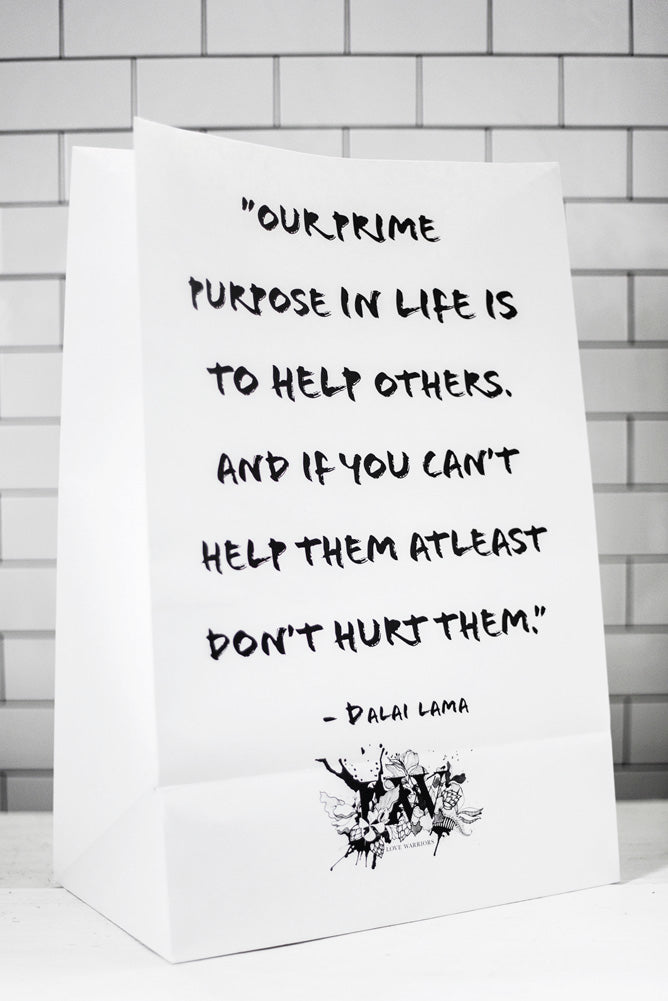 "OUR PRIME
PURPOSE IN LIFE IS
TO HELP OTHERS.
AND IF YOU CAN'T
HELP THEM ATLEAST
DON'T HURT THEM."
- DALAI LAMA
LW
LOVE WARRIORS